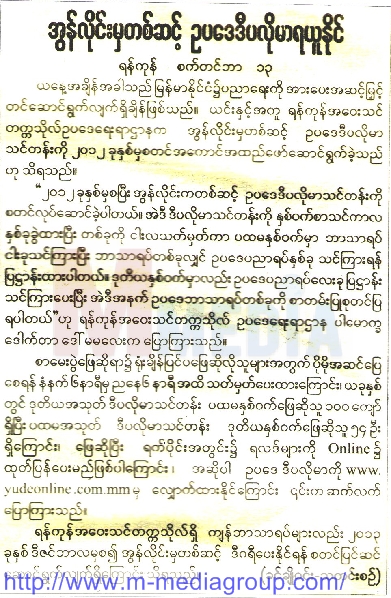 အွန်လိုင်းမှတစ်ဆင့် ဥပဒေဒီပလိုမာရယူနိုင်
ရန်ကုန် စက်တင်ဘာ ၁၃
ယနေ့အချိန်အခါသည် မြန်မာနိုင်ငံ၌ပညာရေးကို အားပေးအဆင့်မြှင့်
တင်ဆောင်ရွက်လျက်ရှိချိန်ဖြစ်သည်။ ယင်းနှင့်အကူ ရန်ကုန်အဝေးသင်
တက္ကသိုလ်ဥပဒေရေးရာဌာနက အွန်လိုင်းမှတစ်ဆင့် ဥပဒေဒီပလိုမာ
သင်တန်းကို ၂၀၁၂ ခုနှစ်မှစတင်အကောင်အထည်ဖော်ဆောင်ရွက်ခဲ့သည်
ဟု သိရသည်။
"၂၀၁၂ ခုနှစ်မှစပြီး အွန်လိုင်းကတစ်ဆင့် ဥပဒေဒီပလိုမာသင်တန်းကို
စတင်လုပ်ဆောင်ခဲ့ပါတယ်။ အဲဒီ ဒီပလိုမာသင်တန်းကို နှစ်ဝက်စာသင်ကာလ
နှစ်ခုခွဲထားပြီး တစ်ခုကို ငါးလသက်မှတ်ကာ ပထမနှစ်ဝက်မှာ ဘာသာရပ်
ငါးခုသင်ကြားပြီး ဘာသာရပ်တစ်ခုလျှင် ဥပဒေပညာရပ်နှစ်ခု သင်ကြားရန်
ပြဋ္ဌာန်းထားပါတယ်။ ဒုတိယနှစ်ဝက်မှာလည်း ဥပဒေပညာရပ်လေးခု ပြဋ္ဌာန်း
သင်ကြားပေးပြီး အဲဒီအနက် ဥပဒေဘာသာရပ်တစ်ခုကို စာတမ်းပြုစုတင်ပြ
ရပါတယ်"ဟု ရန်ကုန်အဝေးသင်တက္ကသိုလ် ဥပဒေရေးရာဌာန ပါမောက္ခ
ဒေါက်တာ ဒေါ် မမလေးက ပြောကြားသည်။
စာမေးပွဲဖြေဆိုရာ၌ ရုံးချိန်ပြင်ပဖြေဆိုလိုသူများအတွက် ပိုမိုအဆင်ပြေ
စေရန် နံနက် ၆ နာရီမှ ညနေ ၆ နာရီအထိ သတ်မှတ်ပေးထားကြောင်း၊ ယခုနှစ်
တွင် ဒုတိယအသုတ် ဒီပလိုမာသင်တန်း ပထမနှစ်ဝက်ဖြေဆိုသူ ၁၀၀ ကျော်
ရှိပြီး ပထမအသုတ် ဒီပလိုမာသင်တန်း ဒုတိယနှစ်ဝက်ဖြေဆိုသူ ၅၄ ဦး
ရှိကြောင်း၊ ဖြေဆိုပြီး ရက်ပိုင်းအတွင်း၌ ရလဒ်များကို Online၌
ထုတ်ပြန်ပေးမည်ဖြစ်ပါကြောင်း၊ အဆိုပါ ဥပဒေ ဒီပလိုမာကို www.
yudeonline.com.mm မှ လျှောက်ထားနိုင်ကြောင်း ၎င်းက ဆက်လက်
ပြောကြားသည်။
ရန်ကုန်အဝေးသင်တက္ကသိုလ်ရှိ ကျန်ဘာသာရပ်များလည်း ၂၀၁၃
ခုနှစ် ဒီဇင်ဘာလမှစ၍ အွန်လိုင်းမှတစ်ဆင့် ဒီဂရီပေးနိုင်ရန် စတင်ပြင်ဆင်
http://www.m-mediagroup.com/
M-MEDIA